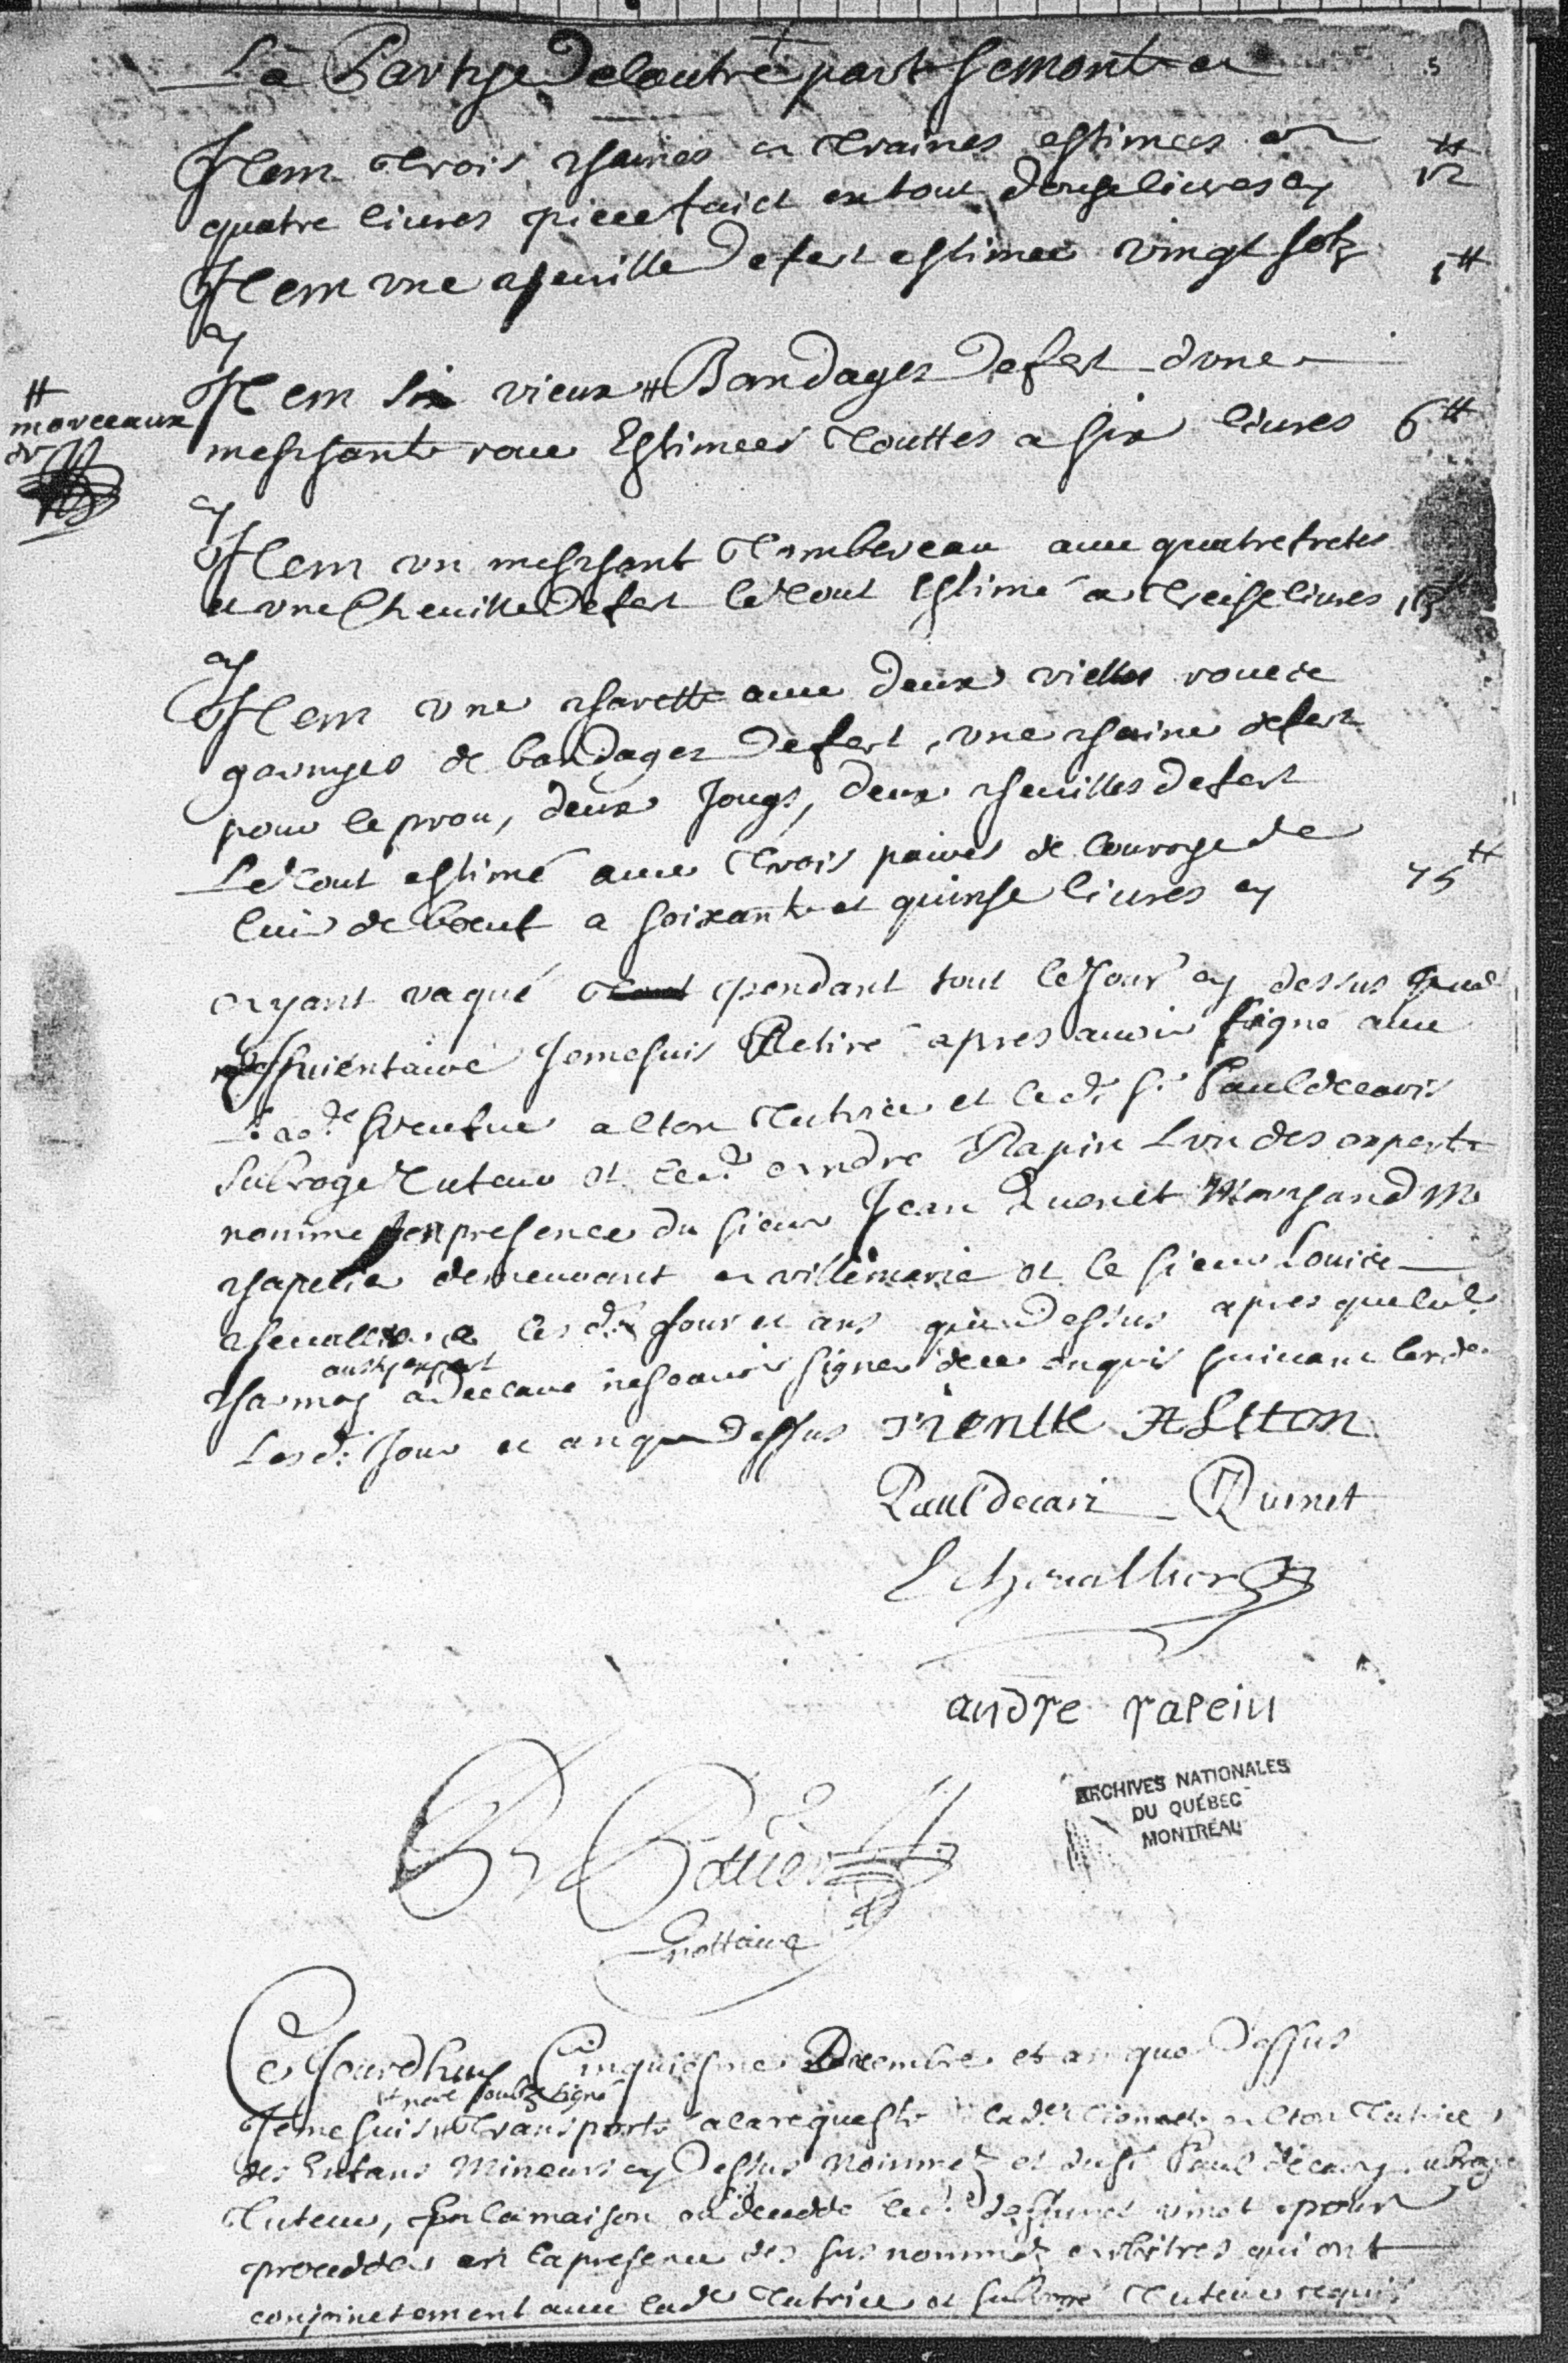 La Partye de lautre part se monte a 5
Item trois chaines a traines estimees a
quatre livres piece faict en tout douze livres cy 12#
Item une cheuille de fer estimee vingt solz 1#
cy
Item six vieux # Bandages de fer dune
# morceaux de
meschante roue Estimees touttes a six livres 6#
cy
Item un meschant Tombereau avec quatre fretes
et une Cheuille de fer le tout Estimé a treise livres 13#
cy
Item une charette avec deux vielles roues
garnyes de bandages de fer, une chaine de fer
pour le prou, deux Jougs, deux cheuilles de fer
Le tout estimé avec trois paires de couroye de
cuir de boeuf a soixante et quinse livres cy 75#
ayant vaqué pendant tout le Jour cy dessus
Inventaire Je me suis Retiré apres avoir signé avec
Lad.e veufue alton Tutrice et led. Sr Paul decaris
Subrogé Tuteur et led. andre Rapin L'un des expert
nommé en presence du sieur Jean Quenet Marchand M
chapelier demeurant a villemarie et le sieur Louis
cheuallier les d. Jour et ans que dessus apres que led.
aussy expert
chamoy a declaré ne scavoir signer de ce enquis suivant lord.
Les d. Jour et an que dessus Alton
Paul decari Quenet
L cheuallier
andre rapein
Pottier
nottaire
ARCHIVES NATIONALES
DU QUÉBEC
MONTRÉAL
Ce Jourdhuy Cinquiesme Decembre et an que Dessus
nore soubz signé
Je me suis transporté a la requeste lad.e alton Tutrice
des Enfans Mineurs cy Dessus Nommez et dud. Sr Paul decary subrogé
Tuteur, En la maison ou decedde led. deffunct vinet pour
procedder en la presence des sus nommez arbitres qui ont
conjoinctement avec lad.e Tutrice et subrogé Tuteur requis